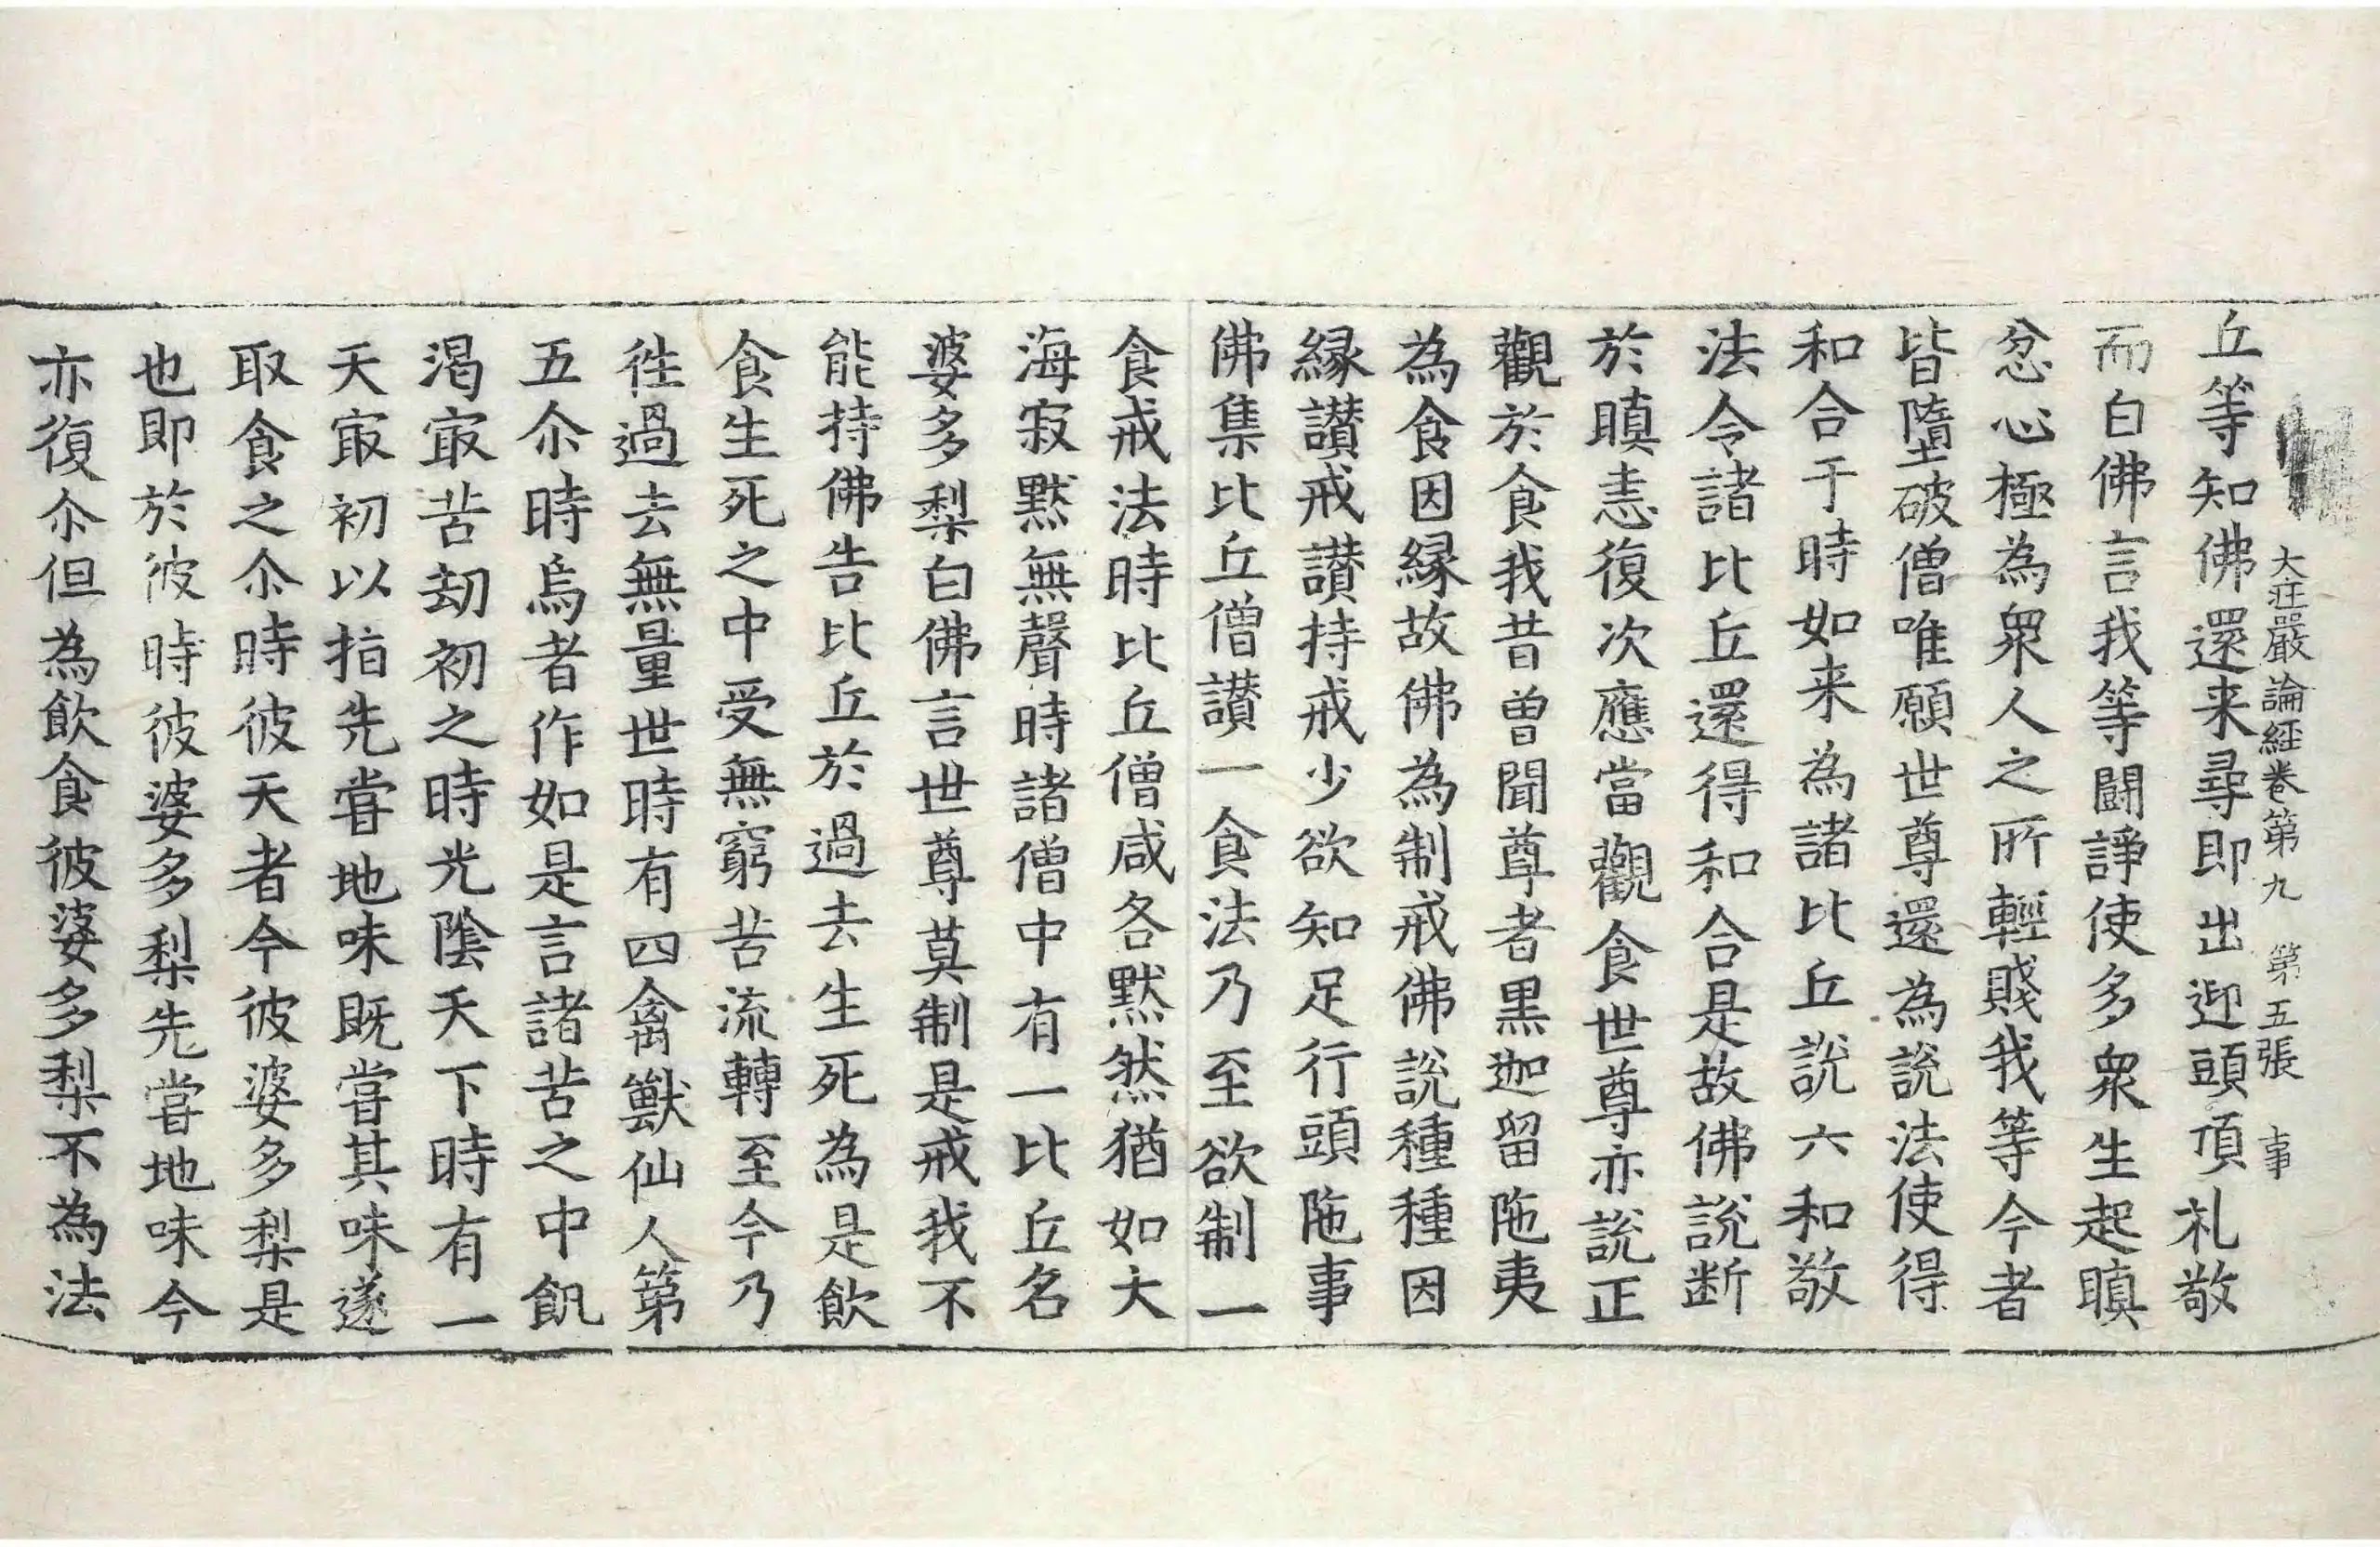 大庄嚴論経卷第九 第五張 事
丘等知佛還来尋即出迎頭頂礼敬
而白佛言我等鬪諍使多衆生起瞋
忿心極為衆人之所輕賤我等今者
皆墮破僧唯願世尊還為說法使得
和合于時如来為諸比丘說六和敬
法令諸比丘還得和合是故佛說断
於瞋恚復次應當觀食世尊亦說正
觀於食我昔曽聞尊者黒迦留陁夷
為食因縁故佛為制戒佛說種種因
縁讃戒讃持戒少欲知足行頭陁事
佛集比丘僧讃一食法乃至欲制一
食戒法時比丘僧咸各黙然猶如大
海寂黙無聲時諸僧中有一比丘名
婆多梨白佛言世尊莫制是戒我不
能持佛告比丘於過去生死為是飲
食生死之中受無窮苦流轉至今乃
徃過去無量世時有四禽獸仙人第
五尒時烏者作如是言諸苦之中飢
渇㝡苦刧初之時光陰天下時有一
天㝡初以指先甞地味既甞其味遂
取食之尒時彼天者今彼婆多梨是
也即於彼時彼婆多梨先甞地味今
亦復尒但為飲食彼婆多梨不為法